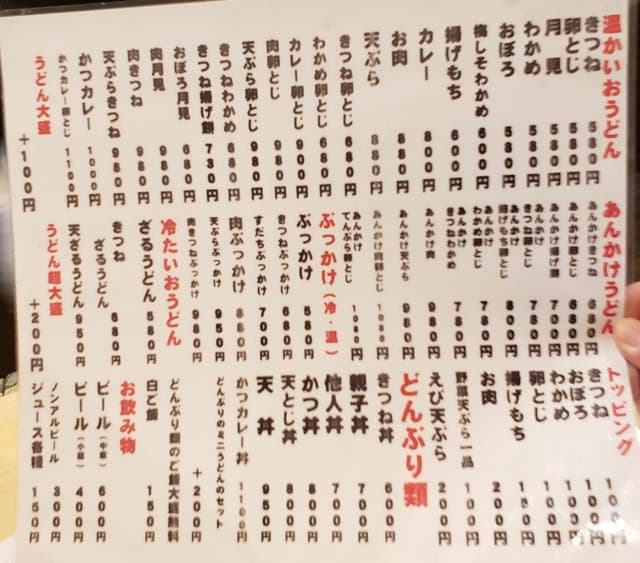 温かいおうどん
きつね 580円
卵とじ 580円
月見 580円
わかめ 580円
おぼろ 580円
梅しそわかめ 600円
揚げもち 600円
カレー 800円
お肉 880円
天ぷら 880円
きつね卵とじ 680円
わかめ卵とじ 680円
カレー卵とじ 900円
肉卵とじ 980円
天ぷら卵とじ 980円
きつねわかめ 680円
きつね揚げ餅 730円
おぼろ月見 680円
肉月見 980円
肉きつね 980円
天ぷらきつね 980円
かつカレー 1000円
かつカレー卵とじ 1100円
うどん大盛 +100円
あんかけうどん
あんかけきつね 680円
あんかけ卵とじ 680円
あんかけ揚げ餅 700円
あんかけきつね卵とじ 780円
あんかけ揚げもち卵とじ 800円
あんかけわかめ卵とじ 780円
あんかけきつねわかめ 780円
あんかけ肉 980円
あんかけ天ぷら 980円
あんかけ肉卵とじ 1080円
あんかけてんぷら卵とじ 1080円
ぶっかけ(冷・温)
ぶっかけ 580円
きつねぶっかけ 680円
すだちぶっかけ 700円
肉ぶっかけ 880円
天ぷらぶっかけ 950円
肉きつねぶっかけ 980円
冷たいおうどん
ざるうどん 580円
きつねざるうどん 680円
天ざるうどん 950円
うどん超大盛 +200円
トッピング
きつね 100円
おぼろ 100円
わかめ 100円
卵とじ 100円
揚げもち 150円
お肉 200円
野菜天ぷら一品 100円
えび天ぷら 200円
どんぶり類
きつね丼 600円
親子丼 700円
他人丼 700円
かつ丼 800円
天とじ丼 800円
天丼 950円
かつカレー丼 1100円
どんぶりのミニうどんのセット +200円
どんぶり類のご飯大盛無料
白ご飯 150円
お飲み物
ビール(中瓶) 600円
ビール(小瓶) 400円
ノンアルビール 300円
ジュース各種 150円